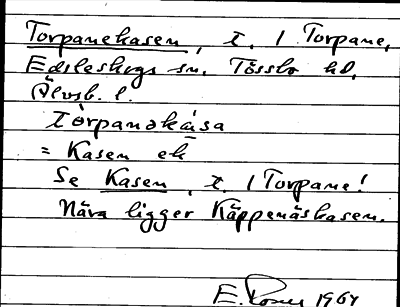 Torpanekasen, t. 1 Torpane,
Edsleskogs sn. Tössbo hd,
Älvsb. l.
tòrpanəkása
= Kasen ek
Se Kasen, t. 1 Torpane!
Nära ligger Käppenäskasen.
E. 1964